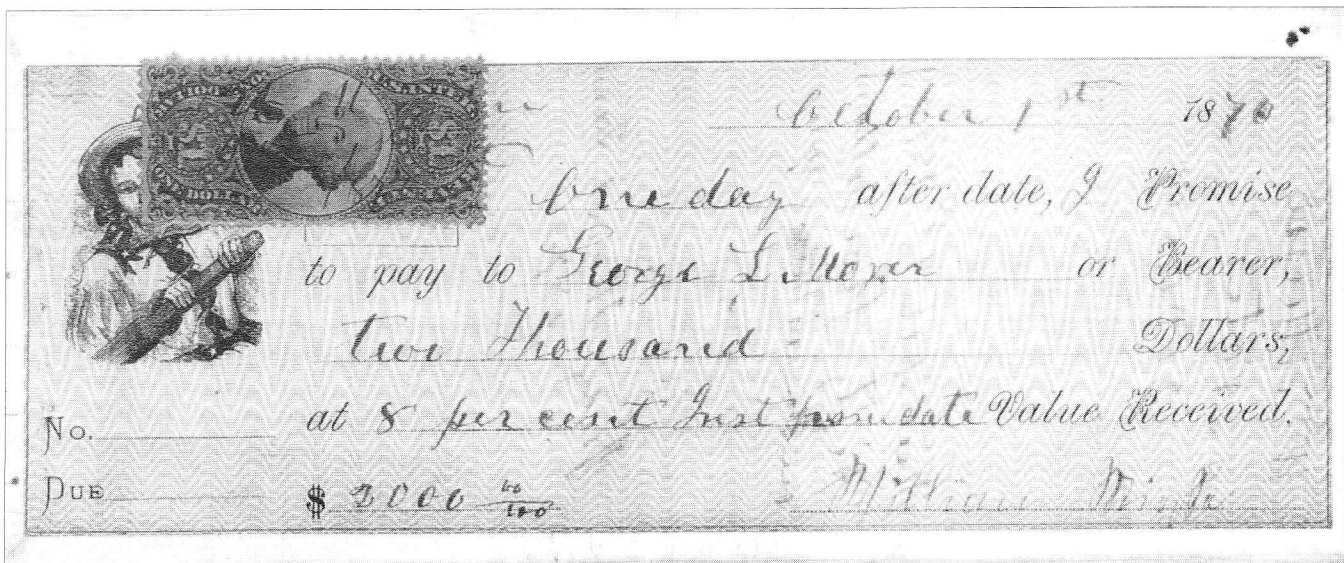 October 1st 1870
One day after date, I Promise
to pay to George L. Moyer or Bearer,
two Thousand Dollars,
at 8 per cent Inst from date Value Received.
No.
DUE $ 2000 00/100
U.S. INTER. REV.
ONE DOLLAR
$1